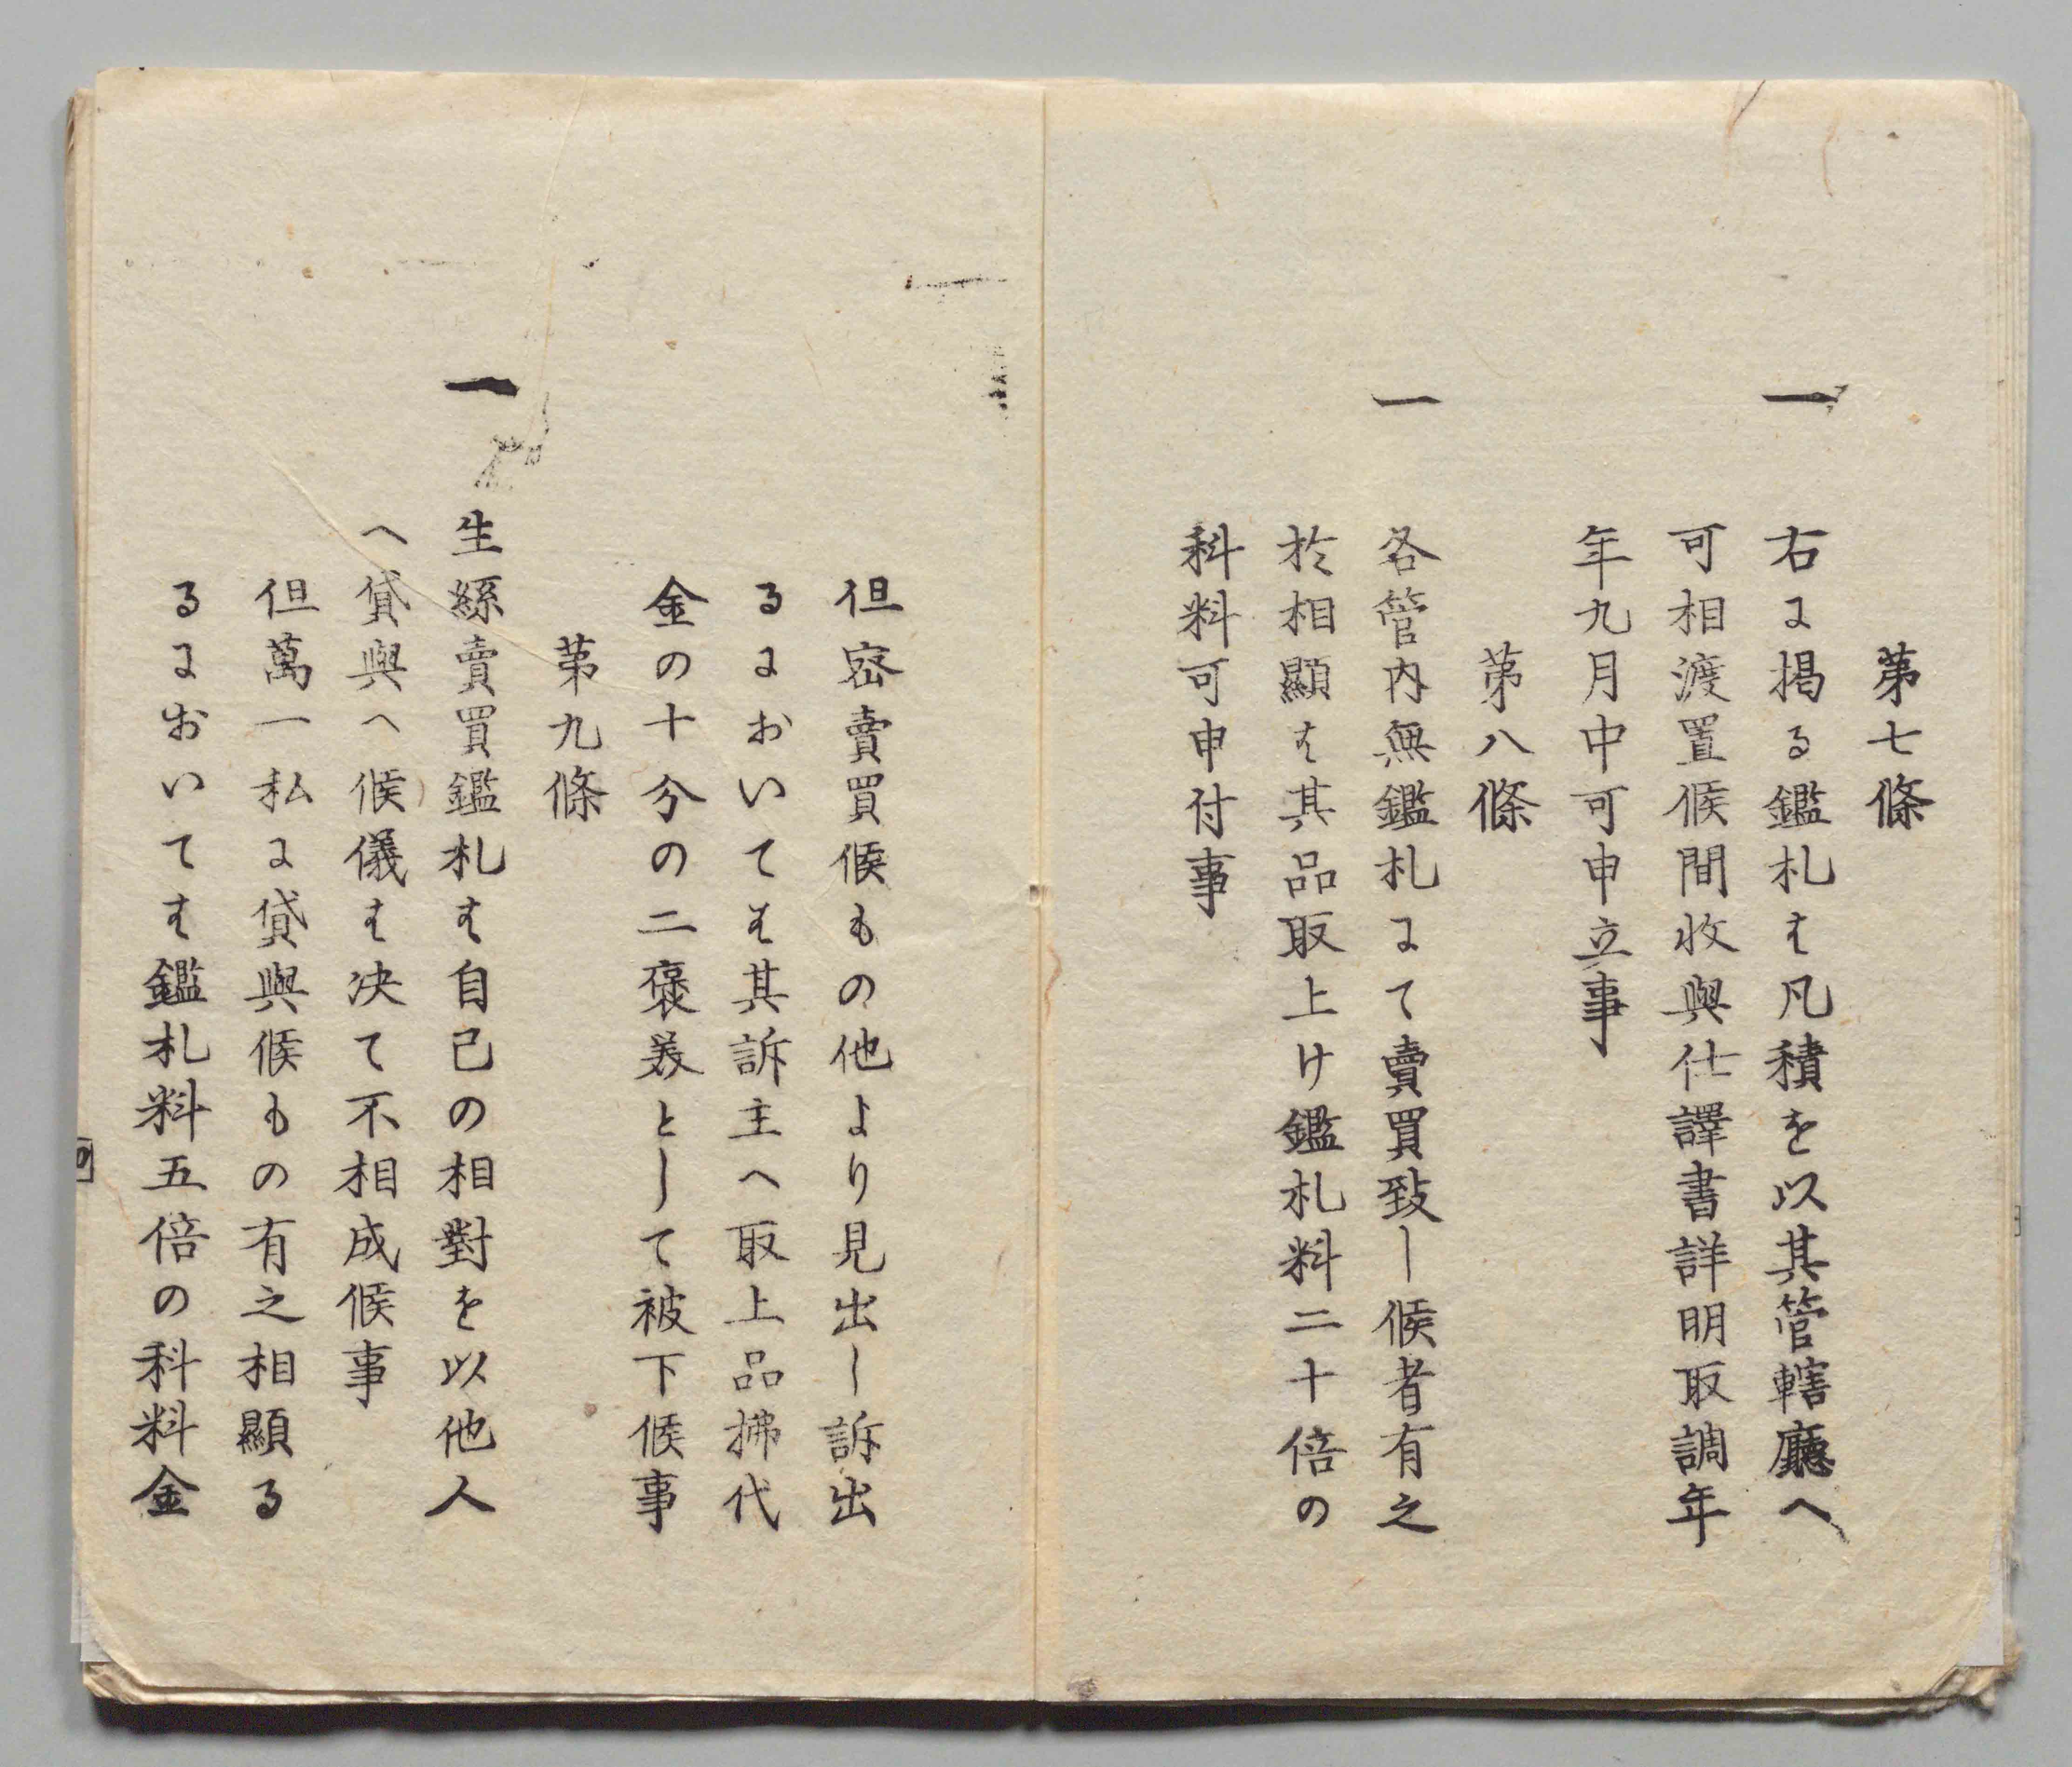 第七條
一 右に掲る鑑札は凡積を以其管轄廳へ
可相渡置候間收與仕譯書詳明取調年
年九月中可申立事
第八條
一 各管内無鑑札にて賣買致し候者有之
於相顯は其品取上け鑑札料二十倍の
科料可申付事
但密賣買候もの他より見出し訴出
るにおいては其訴主へ取上品拂代
金の十分の二褒美として被下候事
第九條
一 生絲賣買鑑札は自己の相對を以他人
へ貸與へ候儀は决て不相成候事
但萬一私に貸與候もの有之相顯る
るにおいては鑑札料五倍の科料金